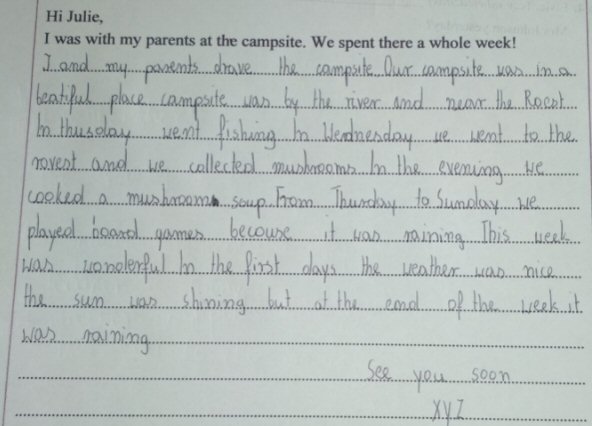 Hi Julie,
I was with my parents at the campsite. We spent there a whole week!
I and my parents drave the campsite. Our campsite was in a
beatiful place campsite was by the river and near the Rocst.
In thusday went fishing In Wednesday we went to the
rovest and we collected mushrooms In the evening we
cooked a mushroom soup From Thursday to Sunday we
played board games becouse it was raining This week
was wonderful In the first days the weather was nice
the sun was shining but at the end of the week it
was raining
See you soon
XYZ